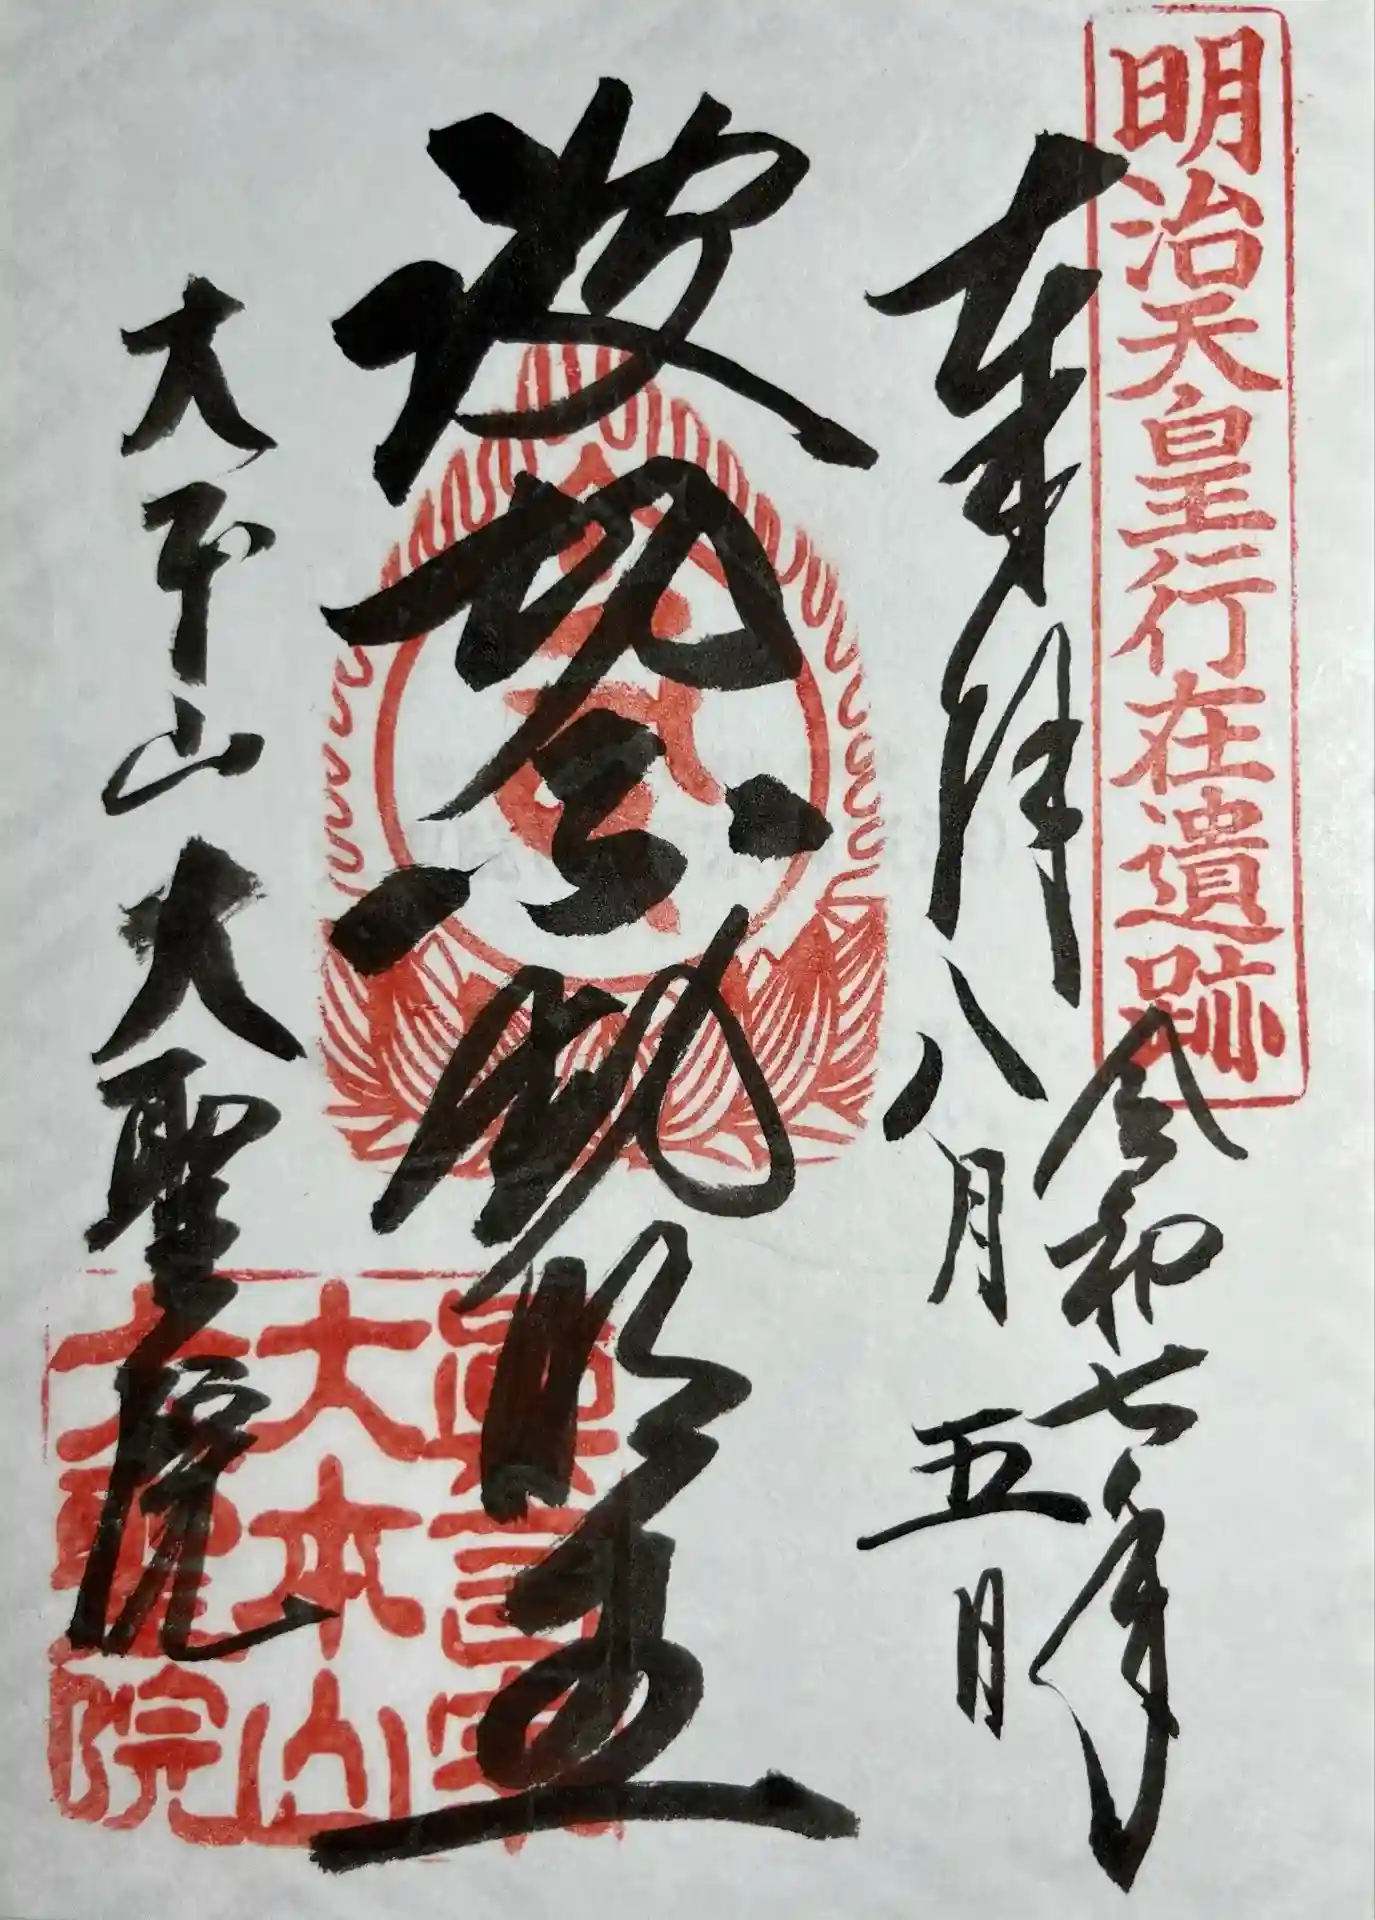 明治天皇行在遺跡
奉拝
令和七年
八月五日
波切不動明王
大本山 大聖院
眞言宗
大本山
大聖院